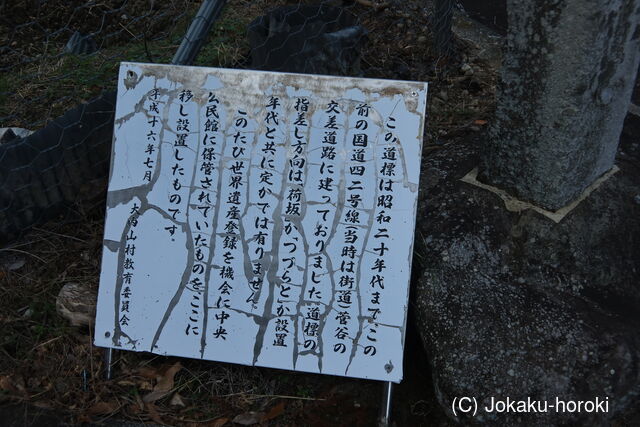 この道標は昭和二十年代まで、この
前の国道四二号線(当時は街道)菅谷の
交差道路に建っておりました。道標の
指差し方向は、「荷坂」か、つづらとか設置
年代と共に定かでは有りません。
このたび世界遺産登録を機会に中央
公民館に保管されていたものをここに
移し設置したものです。
平成十六年七月
大内山村教育委員会
(C) Jokaku-horoki